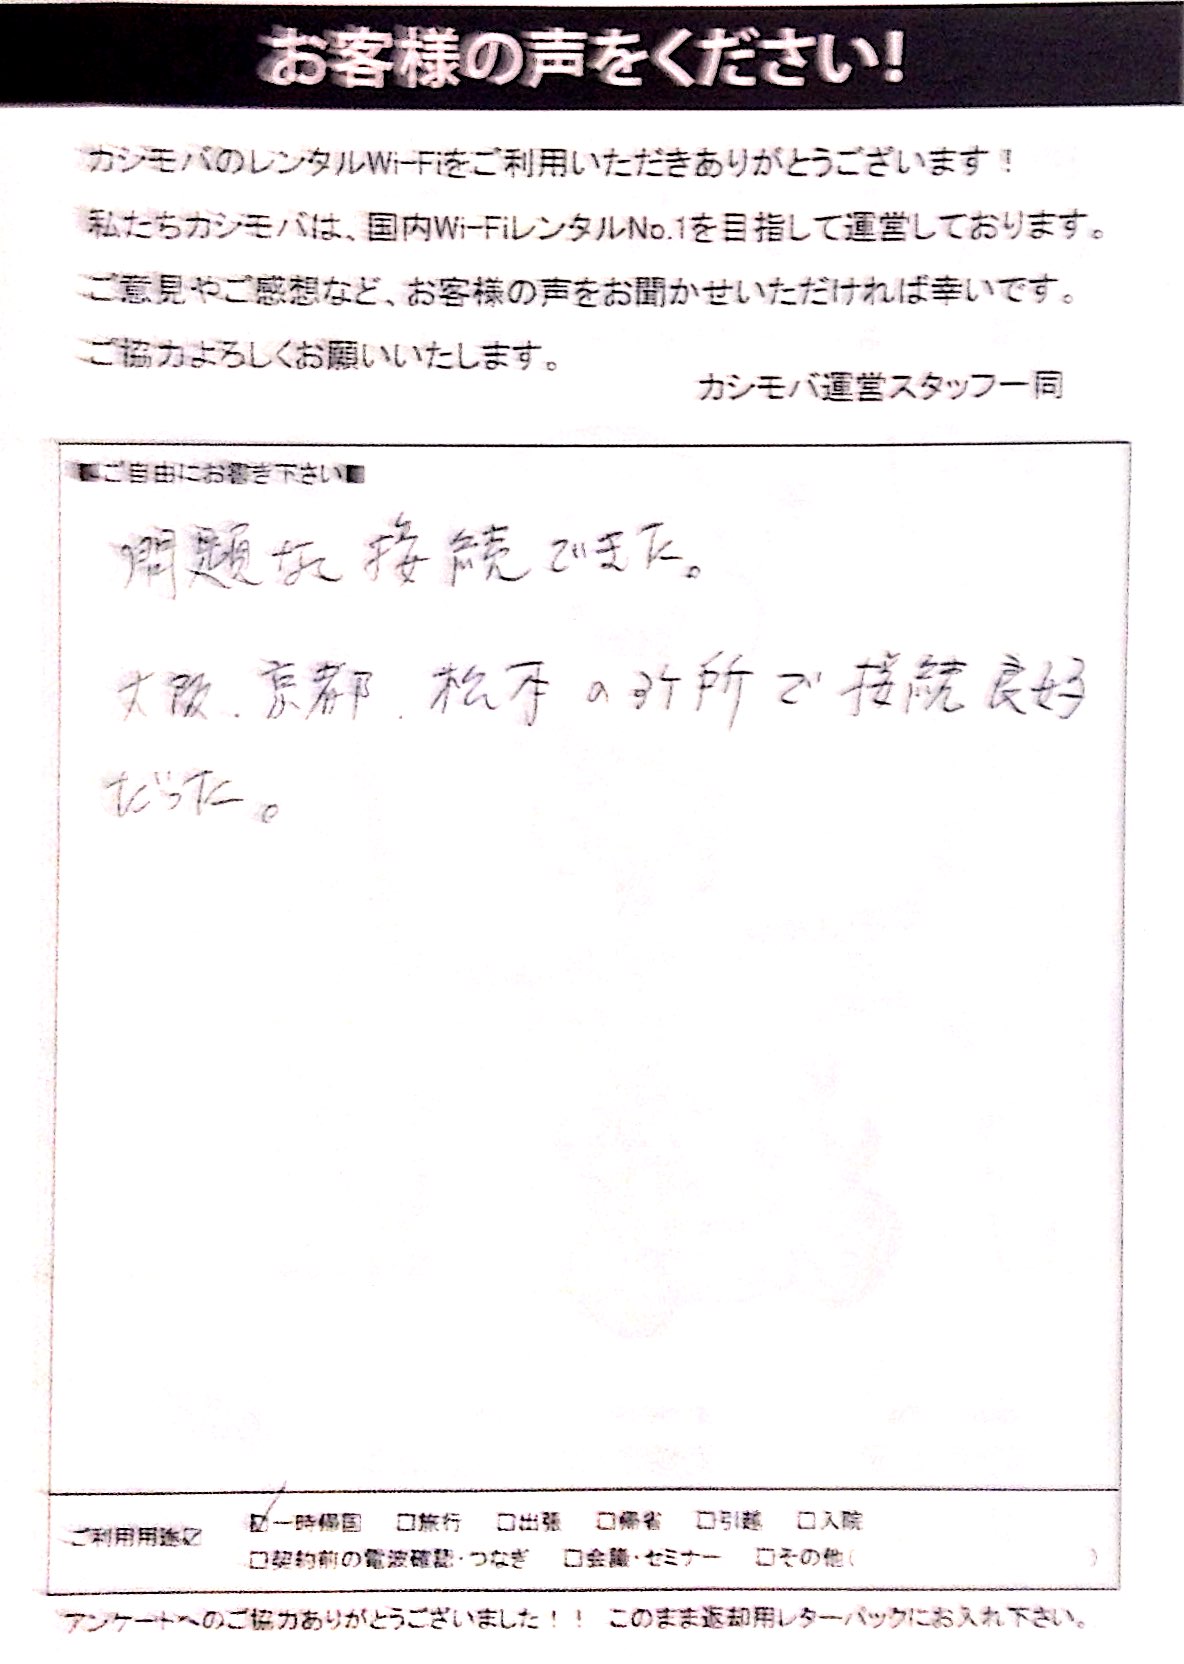 お客様の声をください!
カシモバのレンタルWi-Fiをご利用いただきありがとうございます！
私たちカシモバは、国内Wi-FiレンタルNo.1を目指して運営しております。
ご意見やご感想など、お客様の声をお聞かせいただければ幸いです。
ご協力よろしくお願いいたします。
カシモバ運営スタッフ一同
【ご自由にお書き下さい】
問題なく接続できました。
大阪、京都、松本の3ケ所で接続良好
だった。
ご利用用途☑ ☑一時帰国 □旅行 □出張 □帰省 □引越 □入院
□契約前の電波確認・つなぎ □会議・セミナー □その他( )
アンケートへのご協力ありがとうございました！！ このまま返却用レターパックにお入れ下さい。